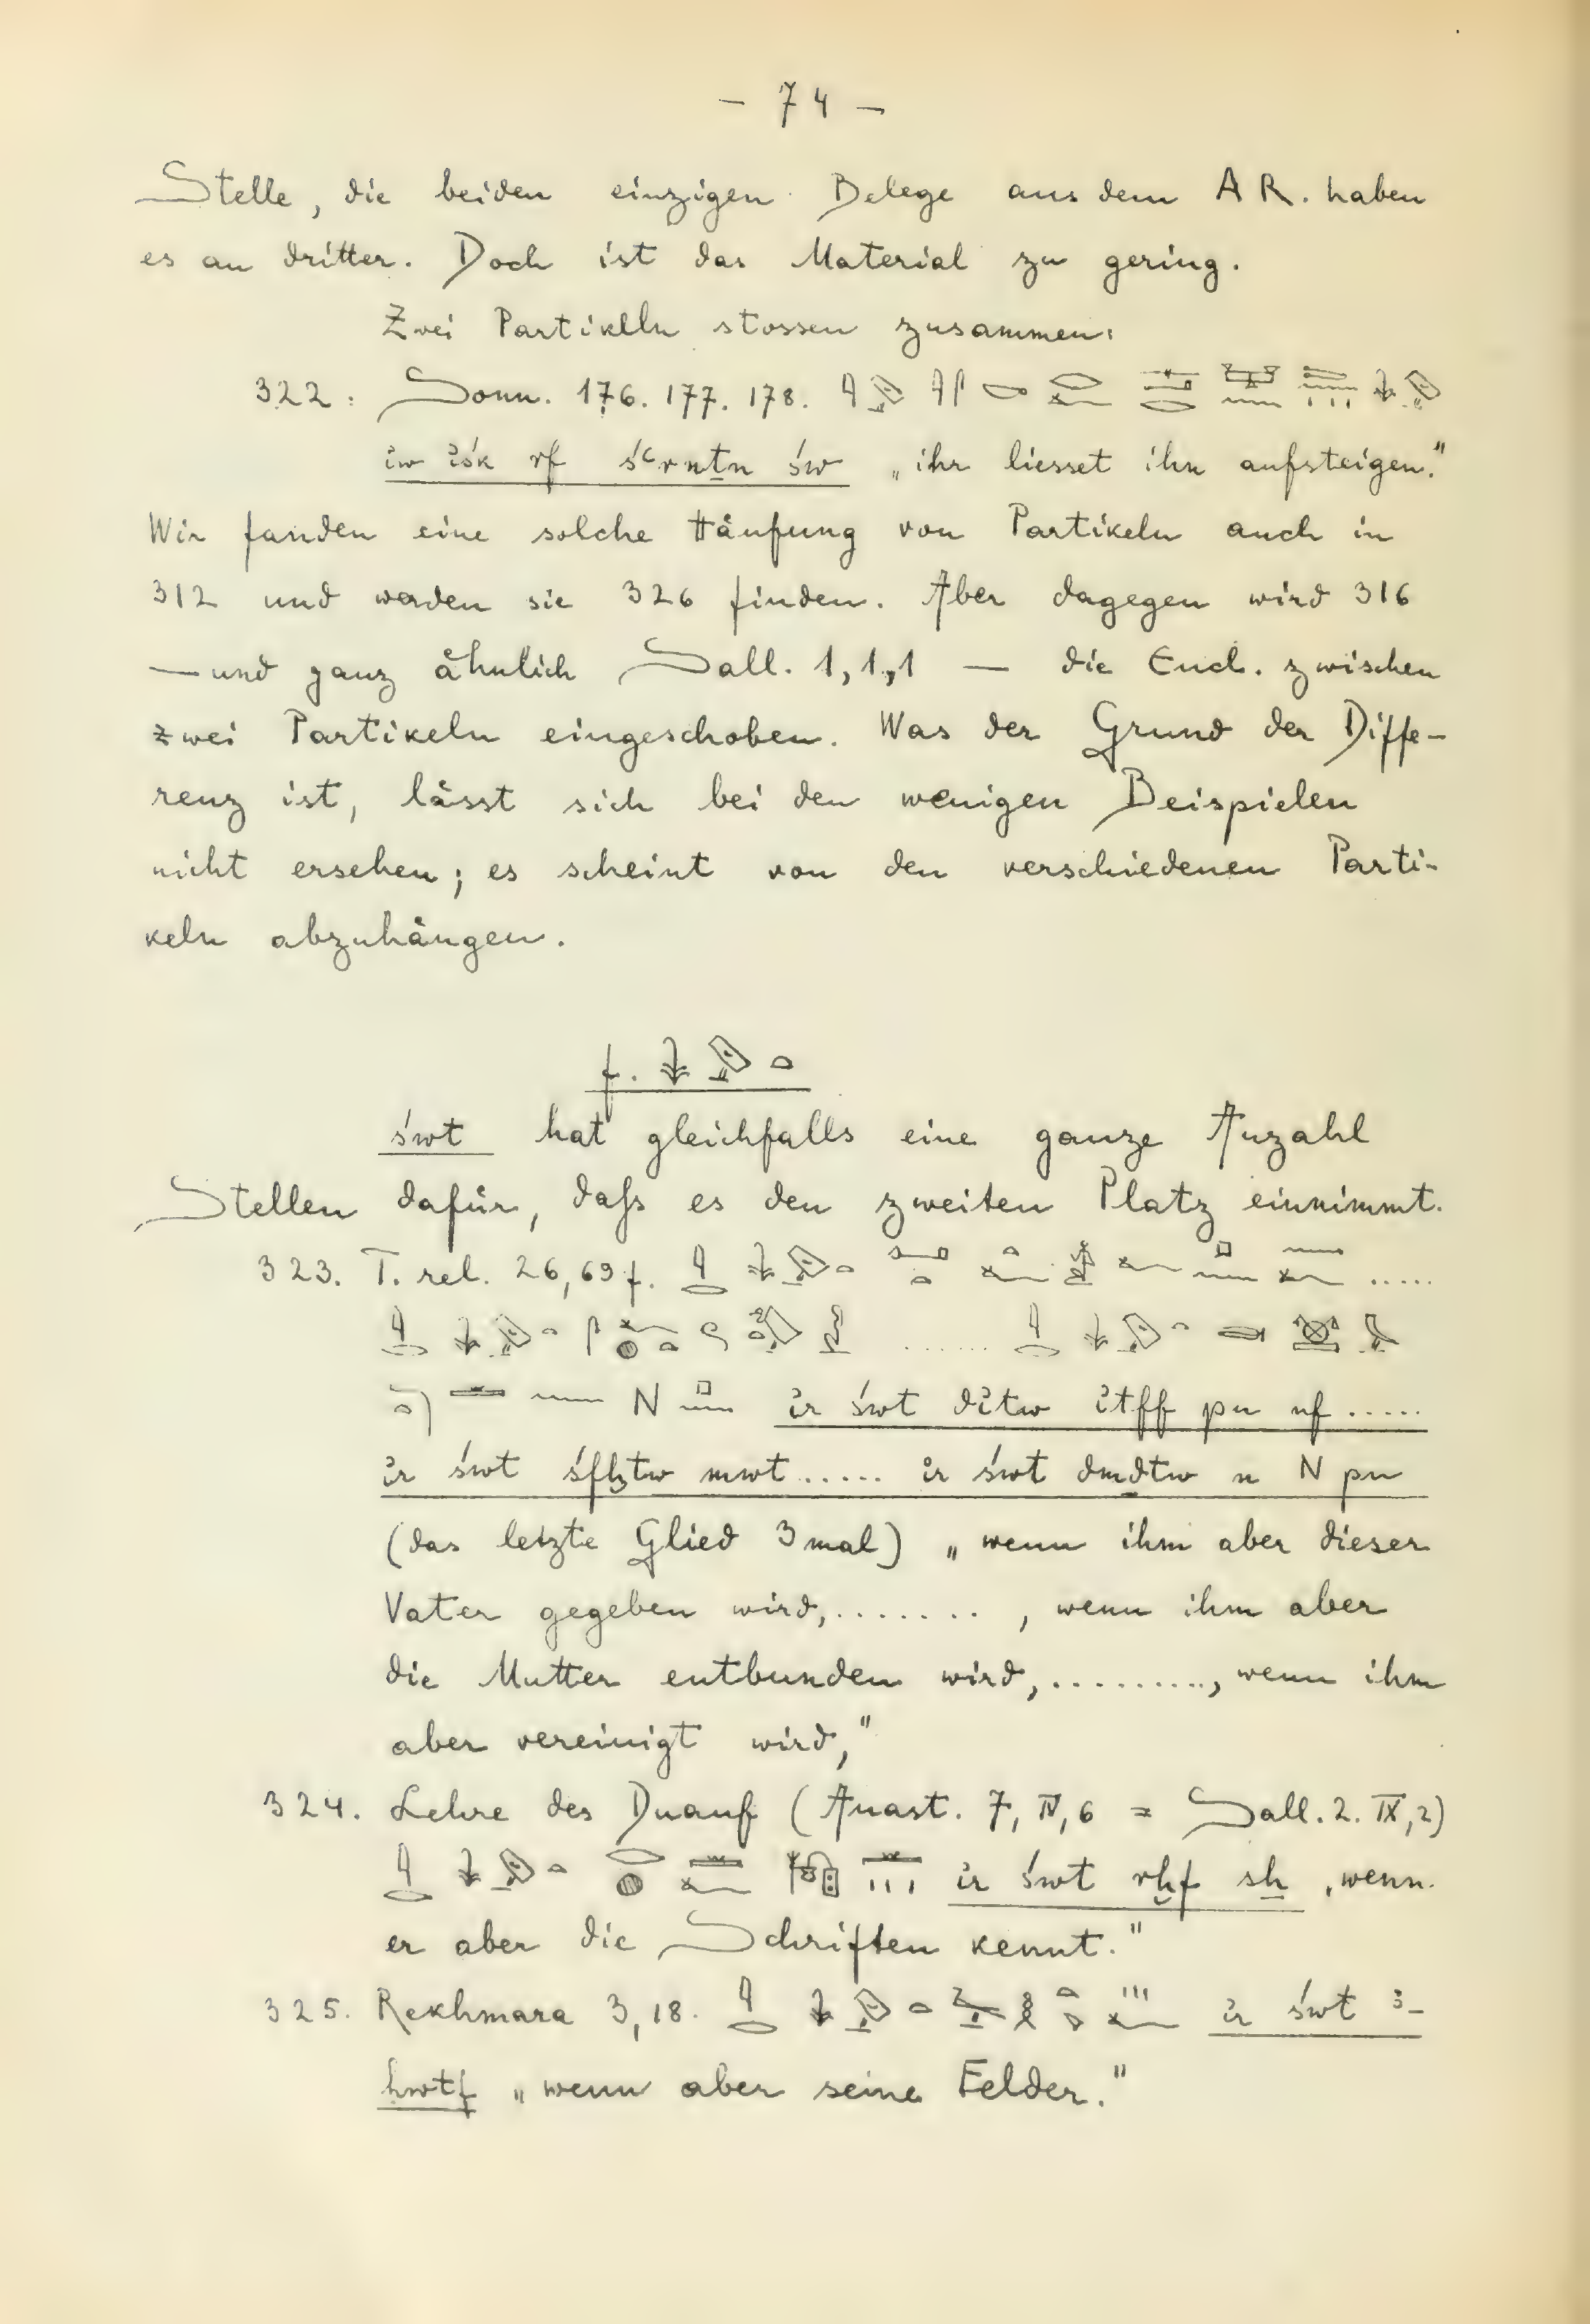 - 74 -
Stelle, die beiden einzigen Belege aus dem AR. haben
es an dritter. Doch ist das Material zu gering.
Zwei Partikeln stossen zusammen:
322. Sonn. 176. 177. 178.
iw isk rf sꜥrnṯn św „ihr liesset ihn aufsteigen."
Wir fanden eine solche Häufung von Partikeln auch in
312 und werden sie 326 finden. Aber dagegen wird 316
— und ganz ähnlich Sall. 1,1,1 — die Encl. zwischen
zwei Partikeln eingeschoben. Was der Grund der Diffe-
renz ist, lässt sich bei den wenigen Beispielen
nicht ersehen; es scheint von den verschiedenen Parti-
keln abzuhängen.
f.
śwt hat gleichfalls eine ganze Anzahl
Stellen dafür, daß es den zweiten Platz einnimmt.
323. T. rel. 26,69 f. .....
.......
N ir śwt ditw itff pn nf .....
ir śwt śfḫtw mwt ...... ir śwt dmḏtw n N pn
(das letzte Glied 3mal) „wenn ihm aber dieser
Vater gegeben wird, ........, wenn ihm aber
die Mutter entbunden wird, .........., wenn ihm
aber vereinigt wird,"
324. Lehre des Duauf (Anast. 7, IV, 6 = Sall. 2. IX, 2)
ir śwt rḫf sẖ „wenn
er aber die Schriften kennt."
325. Rekhmara 3,18. ir śwt ꜣ-
ḥwtf „wenn aber seine Felder."